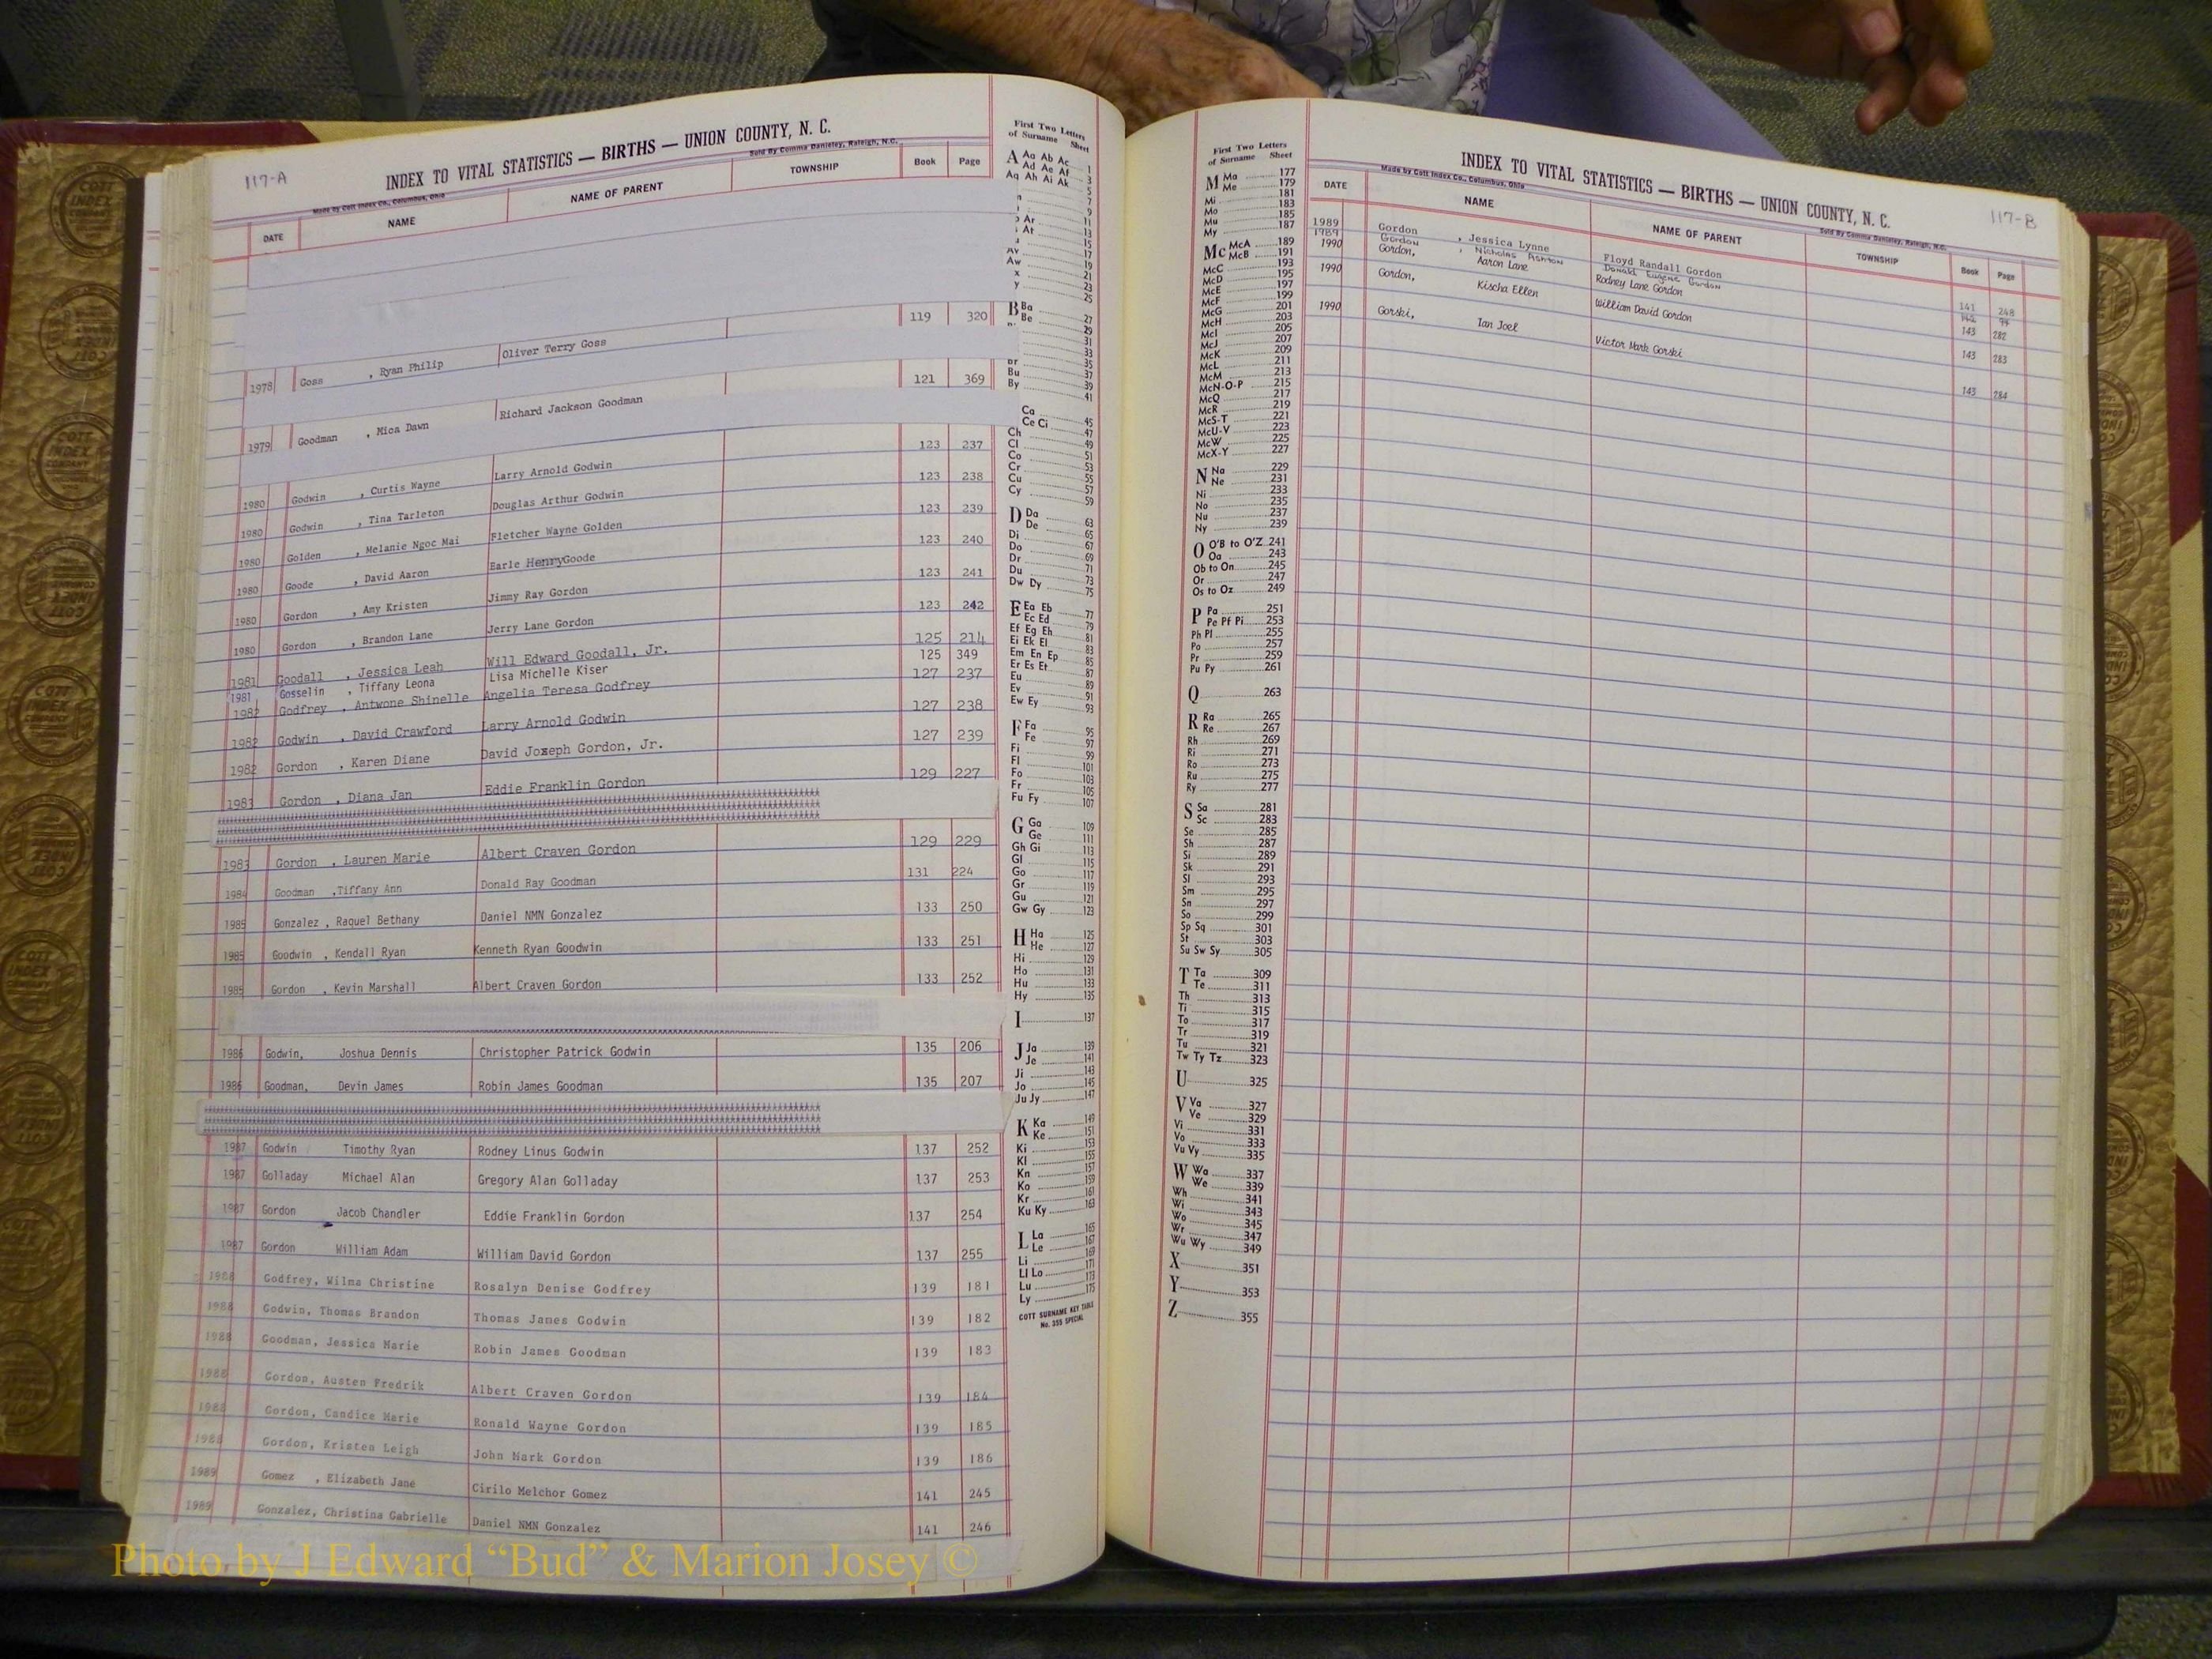 117-A
INDEX TO VITAL STATISTICS — BIRTHS — UNION COUNTY, N. C.
Made by Cott Index Co., Columbus, Ohio
Sold By Comma Danieley, Raleigh, N.C.
DATE NAME NAME OF PARENT TOWNSHIP Book Page
1978 Goss , Ryan Philip Oliver Terry Goss 119 320
1979 Goodman , Mica Dawn Richard Jackson Goodman 121 369
1980 Godwin , Curtis Wayne Larry Arnold Godwin 123 237
1980 Godwin , Tina Tarleton Douglas Arthur Godwin 123 238
1980 Golden , Melanie Ngoc Mai Fletcher Wayne Golden 123 239
1980 Goode , David Aaron Earle HenryGoode 123 240
1980 Gordon , Amy Kristen Jimmy Ray Gordon 123 241
1980 Gordon , Brandon Lane Jerry Lane Gordon 123 242
1981 Goodall , Jessica Leah Will Edward Goodall, Jr. 125 214
1981 Gosselin , Tiffany Leona Lisa Michelle Kiser 125 349
1982 Godfrey , Antwone Shinelle Angelia Teresa Godfrey 127 237
1982 Godwin , David Crawford Larry Arnold Godwin 127 238
1982 Gordon , Karen Diane David Joseph Gordon, Jr. 127 239
1983 Gordon , Diana Jan Eddie Franklin Gordon 129 227
1983 Gordon , Lauren Marie Albert Craven Gordon 129 229
1984 Goodman ,Tiffany Ann Donald Ray Goodman 131 224
1985 Gonzalez , Raquel Bethany Daniel NMN Gonzalez 133 250
1985 Goodwin , Kendall Ryan Kenneth Ryan Goodwin 133 251
1985 Gordon , Kevin Marshall Albert Craven Gordon 133 252
1986 Godwin, Joshua Dennis Christopher Patrick Godwin 135 206
1986 Goodman, Devin James Robin James Goodman 135 207
1987 Godwin Timothy Ryan Rodney Linus Godwin 137 252
1987 Golladay Michael Alan Gregory Alan Golladay 137 253
1987 Gordon Jacob Chandler Eddie Franklin Gordon 137 254
1987 Gordon William Adam William David Gordon 137 255
1988 Godfrey, Wilma Christine Rosalyn Denise Godfrey 139 181
1988 Godwin, Thomas Brandon Thomas James Godwin 139 182
1988 Goodman, Jessica Marie Robin James Goodman 139 183
1988 Gordon, Austen Fredrik Albert Craven Gordon 139 184
1988 Gordon, Candice Marie Ronald Wayne Gordon 139 185
1988 Gordon, Kristen Leigh John Mark Gordon 139 186
1989 Gomez , Elizabeth Jane Cirilo Melchor Gomez 141 245
1989 Gonzalez, Christina Gabrielle Daniel NMN Gonzalez 141 246
First Two Letters
of Surname Sheet
A Aa Ab Ac 1
Ad Ae Af 3
Aq Ah Ai Ak 5
7
9
Ar 11
At 13
15
Av 17
Aw 19
x 21
y 23
25
B Ba 27
Be 29
31
33
Br 35
Bu 37
By 39
41
Ca 45
Ce Ci 47
Ch 49
Cl 51
Co 53
Cr 55
Cu 57
Cy 59
D Da 63
De 65
Di 67
Do 69
Dr 71
Du 73
Dw Dy 75
E Ea Eb 77
Ec Ed 79
Ef Eg Eh 81
Ei Ek El 83
Em En Ep 85
Er Es Et 87
Eu 89
Ev 91
Ew Ey 93
F Fa 95
Fe 97
Fi 99
Fl 101
Fo 103
Fr 105
Fu Fy 107
G Ga 109
Ge 111
Gh Gi 113
Gl 115
Go 117
Gr 119
Gu 121
Gw Gy 123
H Ha 125
He 127
Hi 129
Ho 131
Hu 133
Hy 135
I 137
J Ja 139
Je 141
Ji 143
Jo 145
Ju Jy 147
K Ka 149
Ke 151
Ki 153
Kl 155
Kn 157
Ko 159
Kr 161
Ku Ky 163
L La 165
Le 167
Li 169
Ll Lo 171
Lu 173
Ly 175
COTT SURNAME KEY TABLE
No. 355 SPECIAL
First Two Letters
of Surname Sheet
M Ma 177
Me 179
Mi 181
Mo 183
Mu 185
My 187
Mc McA 189
McB 191
McC 193
McD 195
McE 197
McF 199
McG 201
McH 203
McI 205
McJ 207
McK 209
McL 211
McM 213
McN-O-P 215
McQ 217
McR 219
McS-T 221
McU-V 223
McW 225
McX-Y 227
N Na 229
Ne 231
Ni 233
No 235
Nu 237
Ny 239
O O'B to O'Z 241
Oa 243
Ob to On 245
Or 247
Os to Oz 249
P Pa 251
Pe Pf Pi 253
Ph Pl 255
Po 257
Pr 259
Pu Py 261
Q 263
R Ra 265
Re 267
Rh 269
Ri 271
Ro 273
Ru 275
Ry 277
S Sa 281
Sc 283
Se 285
Sh 287
Si 289
Sk 291
Sl 293
Sm 295
Sn 297
So 299
Sp Sq 301
St 303
Su Sw Sy 305
T Ta 309
Te 311
Th 313
Ti 315
To 317
Tr 319
Tu 321
Tw Ty Tz 323
U 325
V Va 327
Ve 329
Vi 331
Vo 333
Vu Vy 335
W Wa 337
We 339
Wh 341
Wi 343
Wo 345
Wr 347
Wu Wy 349
X 351
Y 353
Z 355
INDEX TO VITAL STATISTICS — BIRTHS — UNION COUNTY, N. C.
117-B
Made by Cott Index Co., Columbus, Ohio
Sold By Comma Danieley, Raleigh, N.C.
DATE NAME NAME OF PARENT TOWNSHIP Book Page
1989 Gordon , Jessica Lynne Floyd Randall Gordon 141 248
1989 Gordon , Nicholas Ashton Donald Eugene Gordon 142 94
1990 Gordon, Aaron Lane Rodney Lane Gordon 143 282
1990 Gordon, Kischa Ellen William David Gordon 143 283
1990 Gorski, Ian Joel Victor Mark Gorski 143 284
Photo by J Edward “Bud” & Marion Josey ©